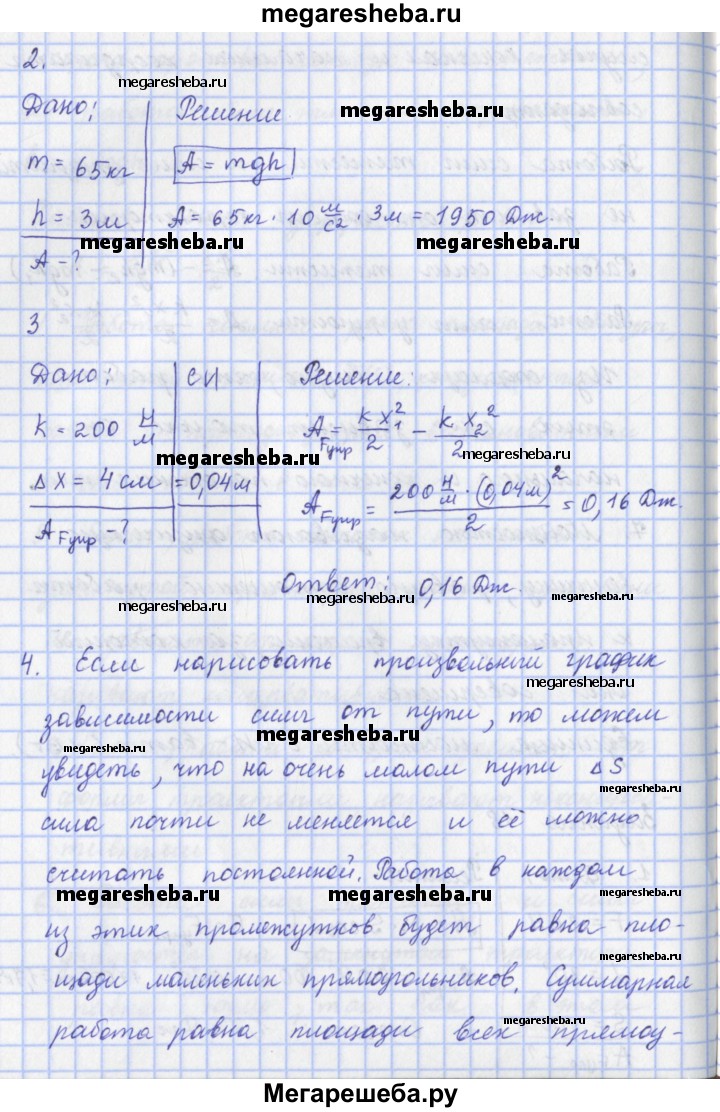 megaresheba.ru
2.
megaresheba.ru
Дано; Решение.
megaresheba.ru
m = 65кг A = mgh
h = 3м A = 65кг · 10 м/с2 · 3м = 1950 Дж.
megaresheba.ru megaresheba.ru
A - ?
3
Дано; СИ Решение:
k = 200 Н/м A Fупр = k x₁²/2 - k x₂²/2
megaresheba.ru megaresheba.ru
Δ X = 4 см = 0,04м A Fупр = 200 Н/м · (0,04м)²/2 = 0,16 Дж.
A Fупр - ?
Ответ: 0,16 Дж.
megaresheba.ru megaresheba.ru
4. Если нарисовать произвольный график
megaresheba.ru
зависимости силы от пути, то можем
megaresheba.ru megaresheba.ru
увидеть, что на очень малом пути Δ S
megaresheba.ru
сила почти не меняется и её можно
считать постоянной. Работа в каждом
megaresheba.ru megaresheba.ru megaresheba.ru
из этих промежутков будет равна пло-
megaresheba.ru
щади маленьких прямоугольников. Суммарная
megaresheba.ru
работа равна площади всех прямоу-
Мегарешеба.ру